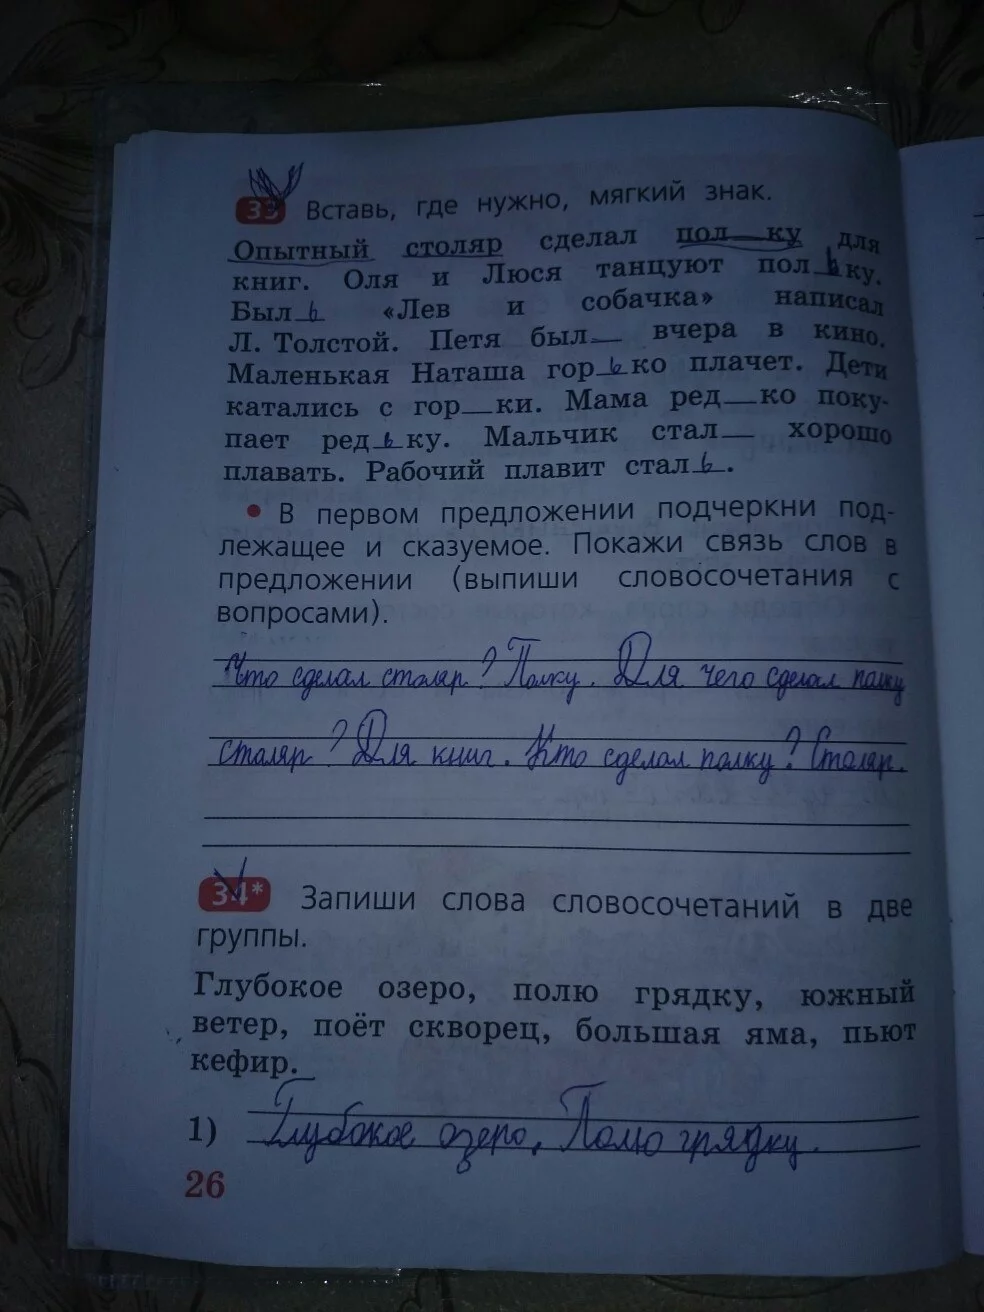 33 Вставь, где нужно, мягкий знак.
Опытный столяр сделал пол__ку для
книг. Оля и Люся танцуют пол_ь_ку.
Был_ь «Лев и собачка» написал
Л. Толстой. Петя был__ вчера в кино.
Маленькая Наташа гор_ь_ко плачет. Дети
катались с гор__ки. Мама ред__ко поку-
пает ред_ь_ку. Мальчик стал__ хорошо
плавать. Рабочий плавит стал_ь_.
• В первом предложении подчеркни под-
лежащее и сказуемое. Покажи связь слов в
предложении (выпиши словосочетания с
вопросами).
Что сделал столяр? Полку. Для чего сделал полку
столяр? Для книг. Кто сделал полку? Столяр.
34* Запиши слова словосочетаний в две
группы.
Глубокое озеро, полю грядку, южный
ветер, поёт скворец, большая яма, пьют
кефир.
1) Глубокое озеро, Полю грядку.
26